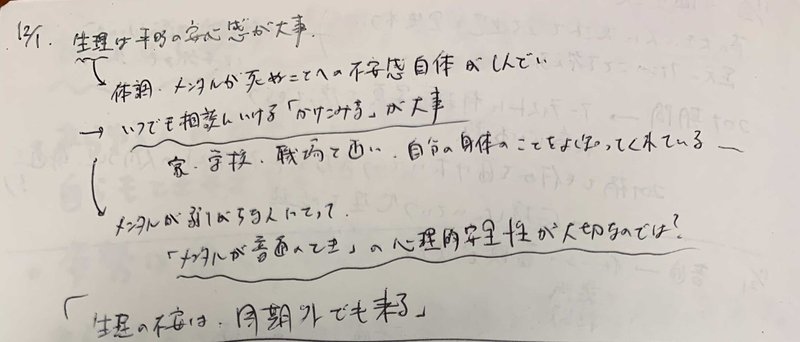 12/1. 生理は平時の安心感が大事.
体調・メンタルが死ぬことへの不安感自体がしんどい
→ いつでも相談にいける「かけこみ寺」が大事
家・学校・職場で 自分の身体のことをよく知ってくれている
メンタルが弱りがちな人にとって.
「メンタルが普通のとき」の心理的安全性が大切なのでは?
「生理の不安は、周期外でも来る」